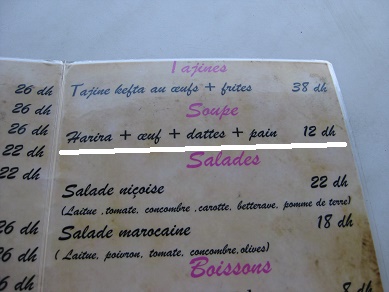 Tajines
26 dh
Tajine kefta au œufs + frites 38 dh
26 dh
Soupe
26 dh
Harira + œuf + dattes + pain 12 dh
22 dh
Salades
22 dh
Salade niçoise 22 dh
(Laitue ,tomate, concombre ,carotte, betterave, pomme de terre)
26 dh
Salade marocaine 18 dh
26 dh
( Laitue, poivron, tomate, concombre,olives)
Boissons
6 dh
8 dh